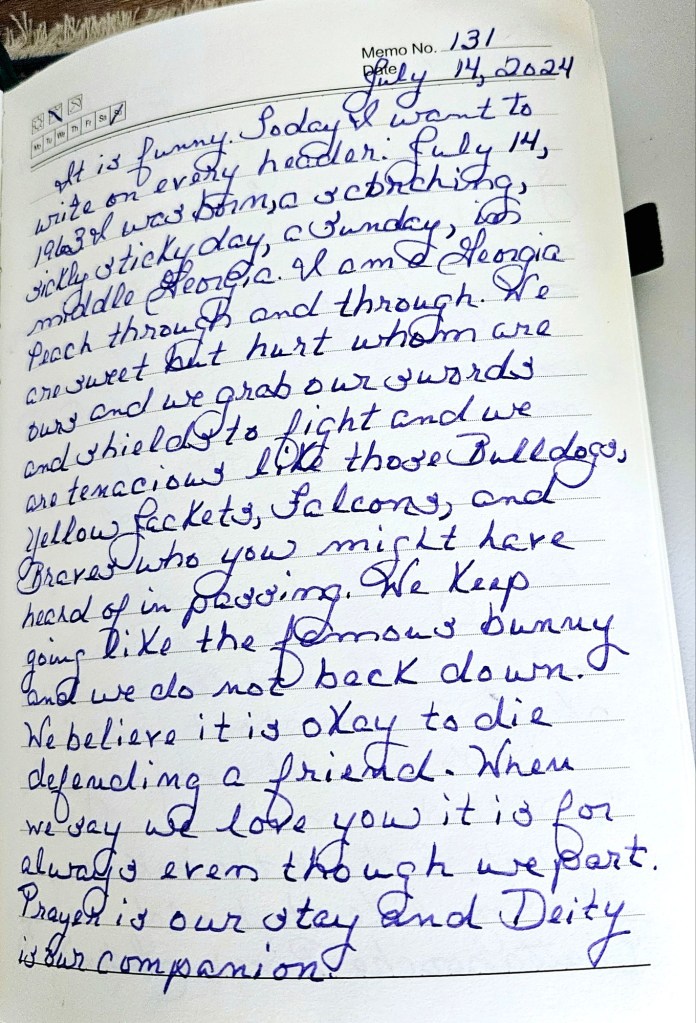 Memo No. 131
Date July 14, 2024
Mo Tu We Th Fr Sa Su
It is funny. Today I want to
write on every header: July 14,
1963 I was born, a scorching,
sickly sticky day, a Sunday, in
middle Georgia. I am a Georgia
Peach through and through. We
are sweet but hurt whom are
ours and we grab our swords
and shields to fight and we
are tenacious like those Bulldogs,
Yellow Jackets, Falcons, and
Braves who you might have
heard of in passing. We Keep
going like the famous bunny
and we do not back down.
We believe it is okay to die
defending a friend. When
we say we love you it is for
always even though we part.
Prayer is our stay and Deity
is our companion.